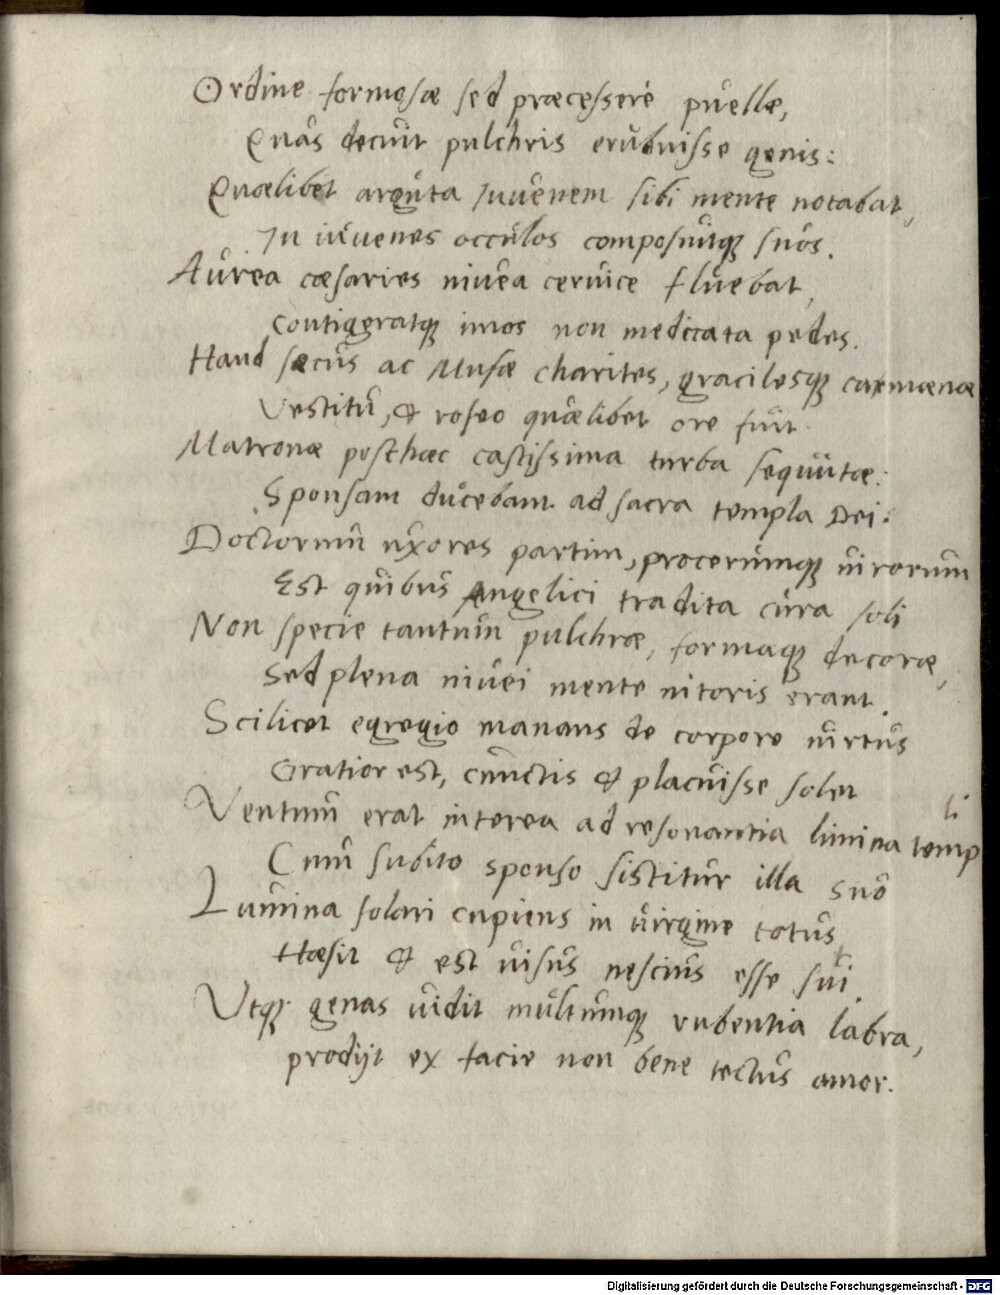 Ordine formosæ sed præcessere puellæ,
Quas decuit pulchris erubuisse genis:
Quælibet arguta Juvenem sibi mente notabat,
In iuvenes occulos composuitque suos.
Aurea cæsaries nivea cervice fluebat,
Contigeratque imos non medicata pedes.
Haud sæcus ac Musæ charites, gracilesque camænæ
Vestitu, & roseo quælibet ore fuit.
Matronæ posthæc castissima turba sequutæ:
Sponsam ducebant ad sacra templa Dei:
Doctorum uxores partim, procerumque virorum
Est quibus Angelici tradita cura soli
Non specie tantum pulchræ, formaque decoræ,
Sed plena nivei mente nitoris erant.
Scilicet egregio manans de corpore virtus
Gratior est, cunctis & placuisse solet
Ventum erat interea ad resonantia limina templi
Cum subito sponso sistitur illa suo
Lumina solari cupiens in virgine totus
Hæsit & est visus nescius esse sui.
Utque genas vidit multumque rubentia labra,
prodijt ex facie non bene tectus amor.
Digitalisierung gefördert durch die Deutsche Forschungsgemeinschaft - DFG